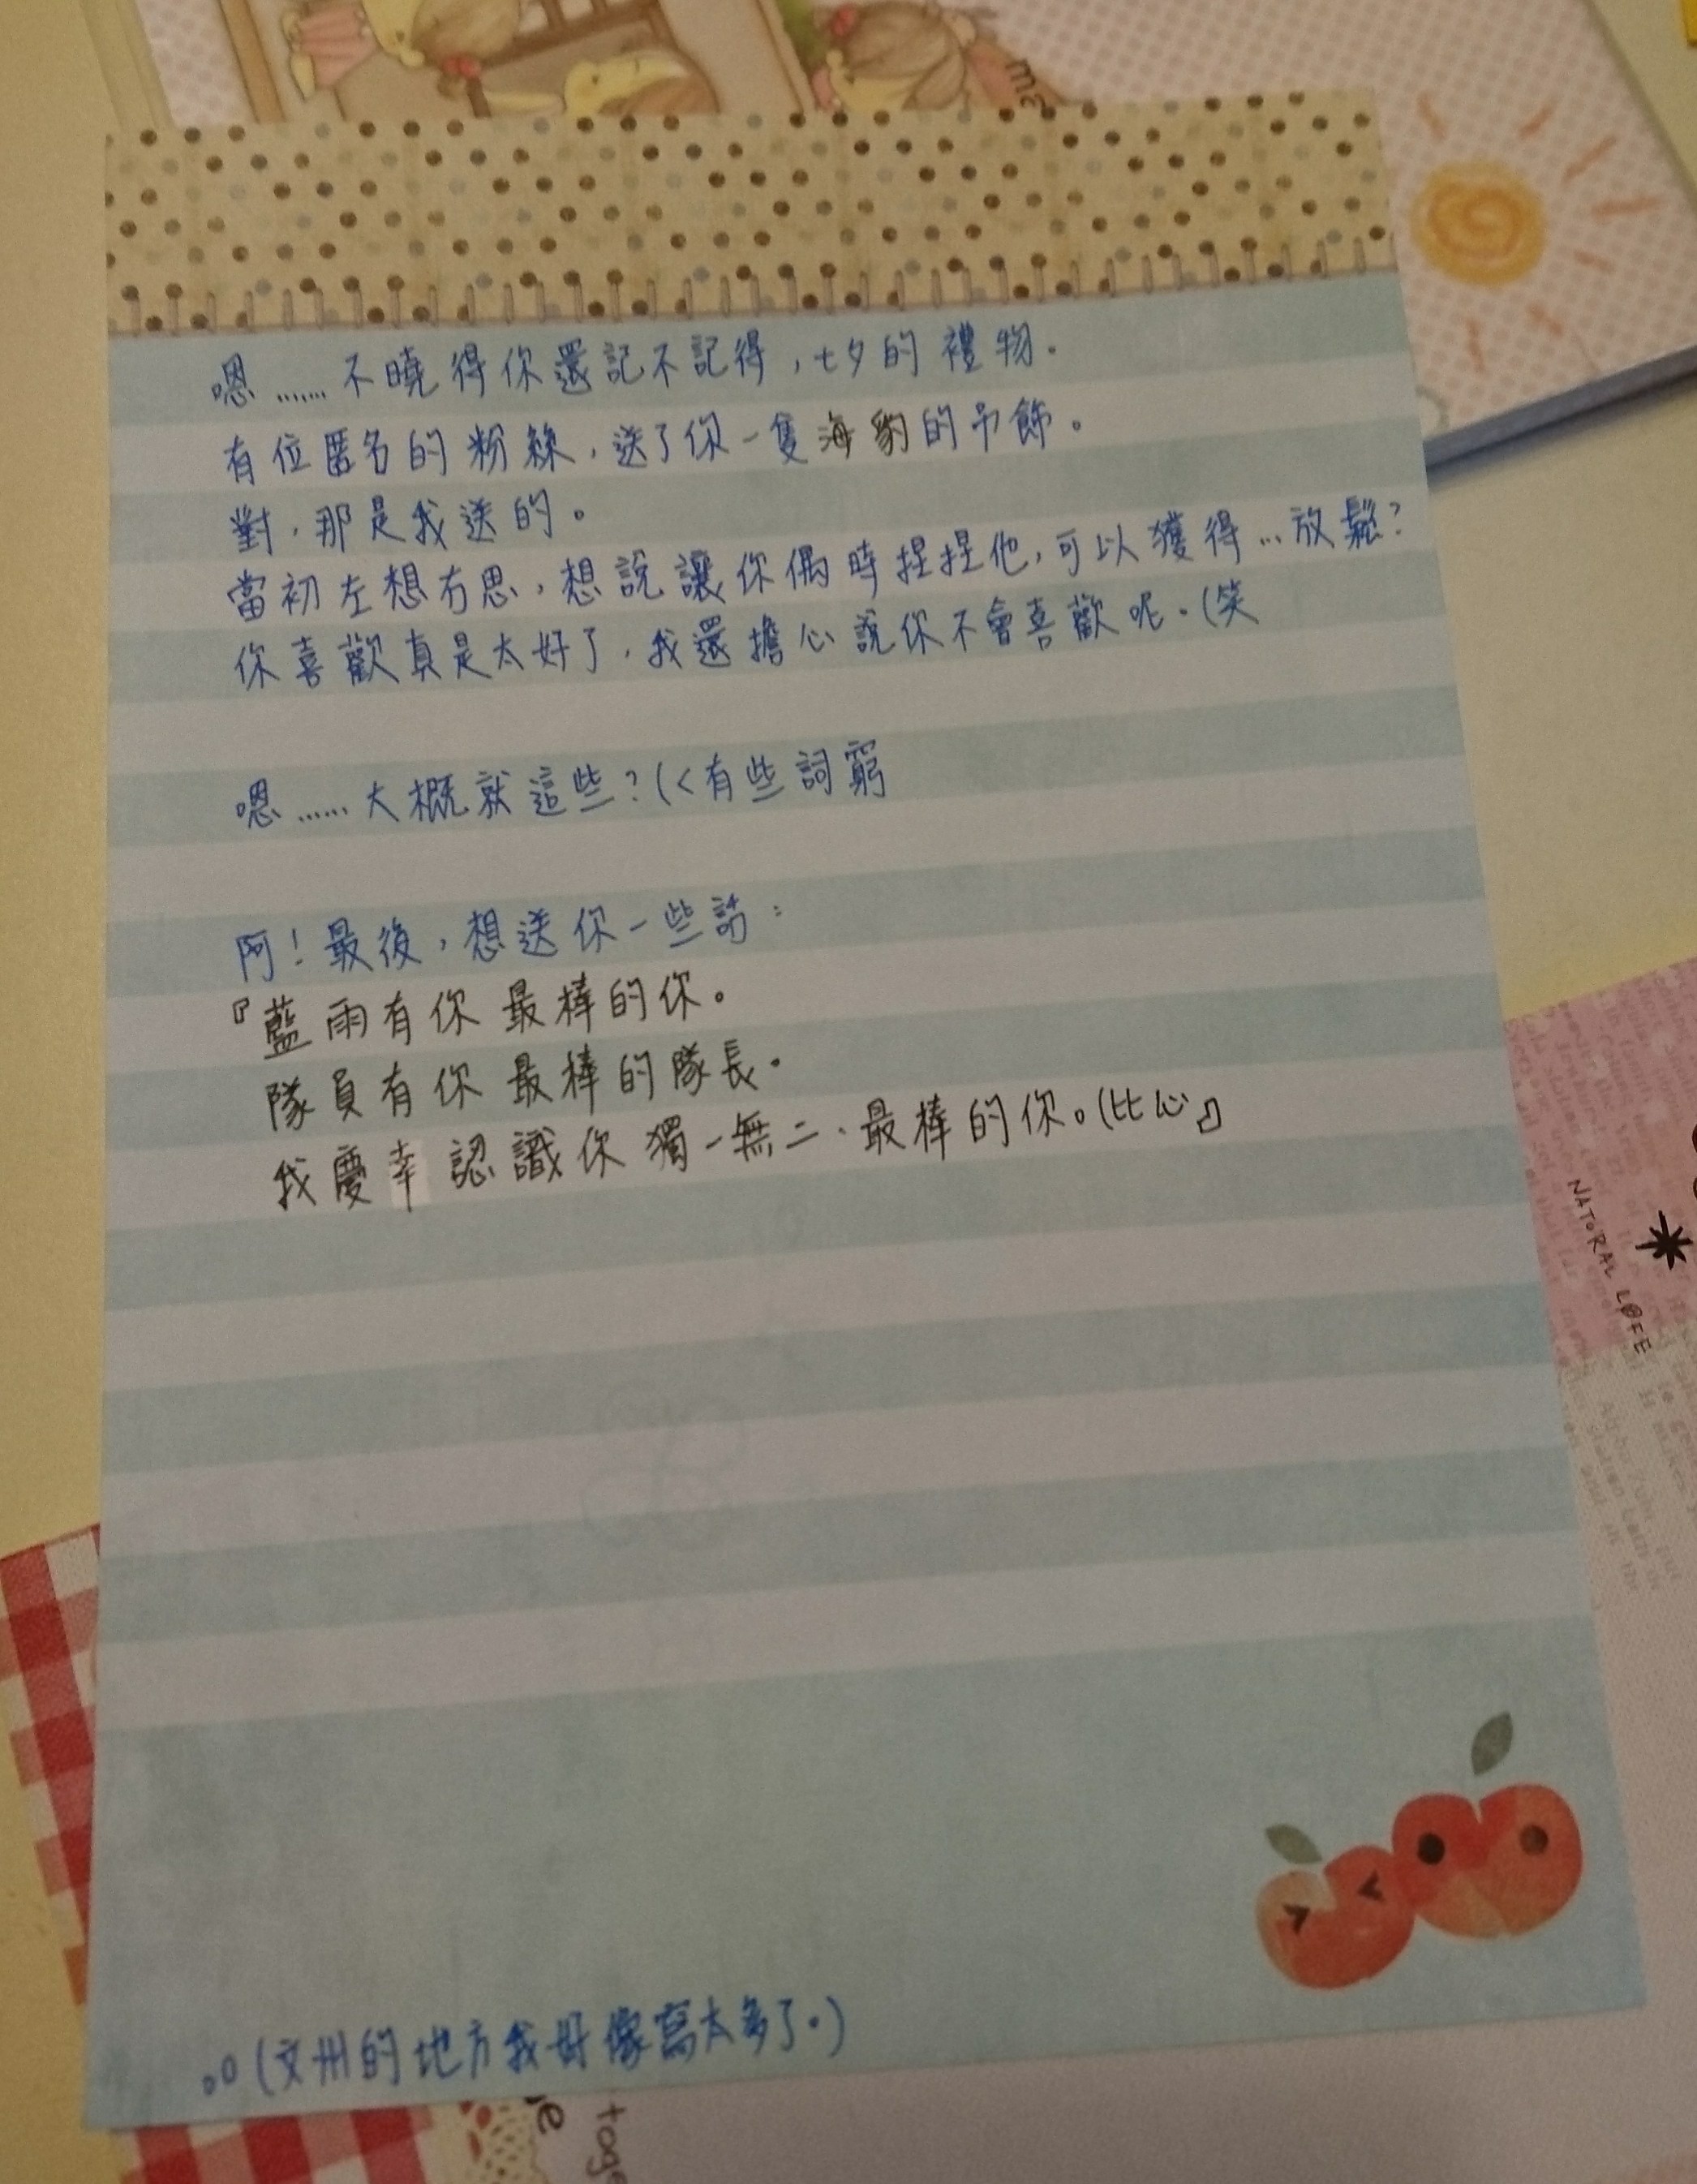 嗯……不曉得你還記不記得,七夕的禮物.
有位匿名的粉絲,送了你一隻海豹的吊飾。
對,那是我送的。
當初左想右思,想說讓你偶時捏捏他,可以獲得…放鬆?
你喜歡真是太好了,我還擔心說你不會喜歡呢.(笑
嗯……大概就這些?(<有些詞窮
阿!最後,想送你一些話:
『藍雨有你 最棒的你。
隊員有你 最棒的隊長.
我慶幸 認識你 獨一無二.最棒的你。(比心』
。o(文州的地方我好像寫太多了.)
NATURAL LOFE